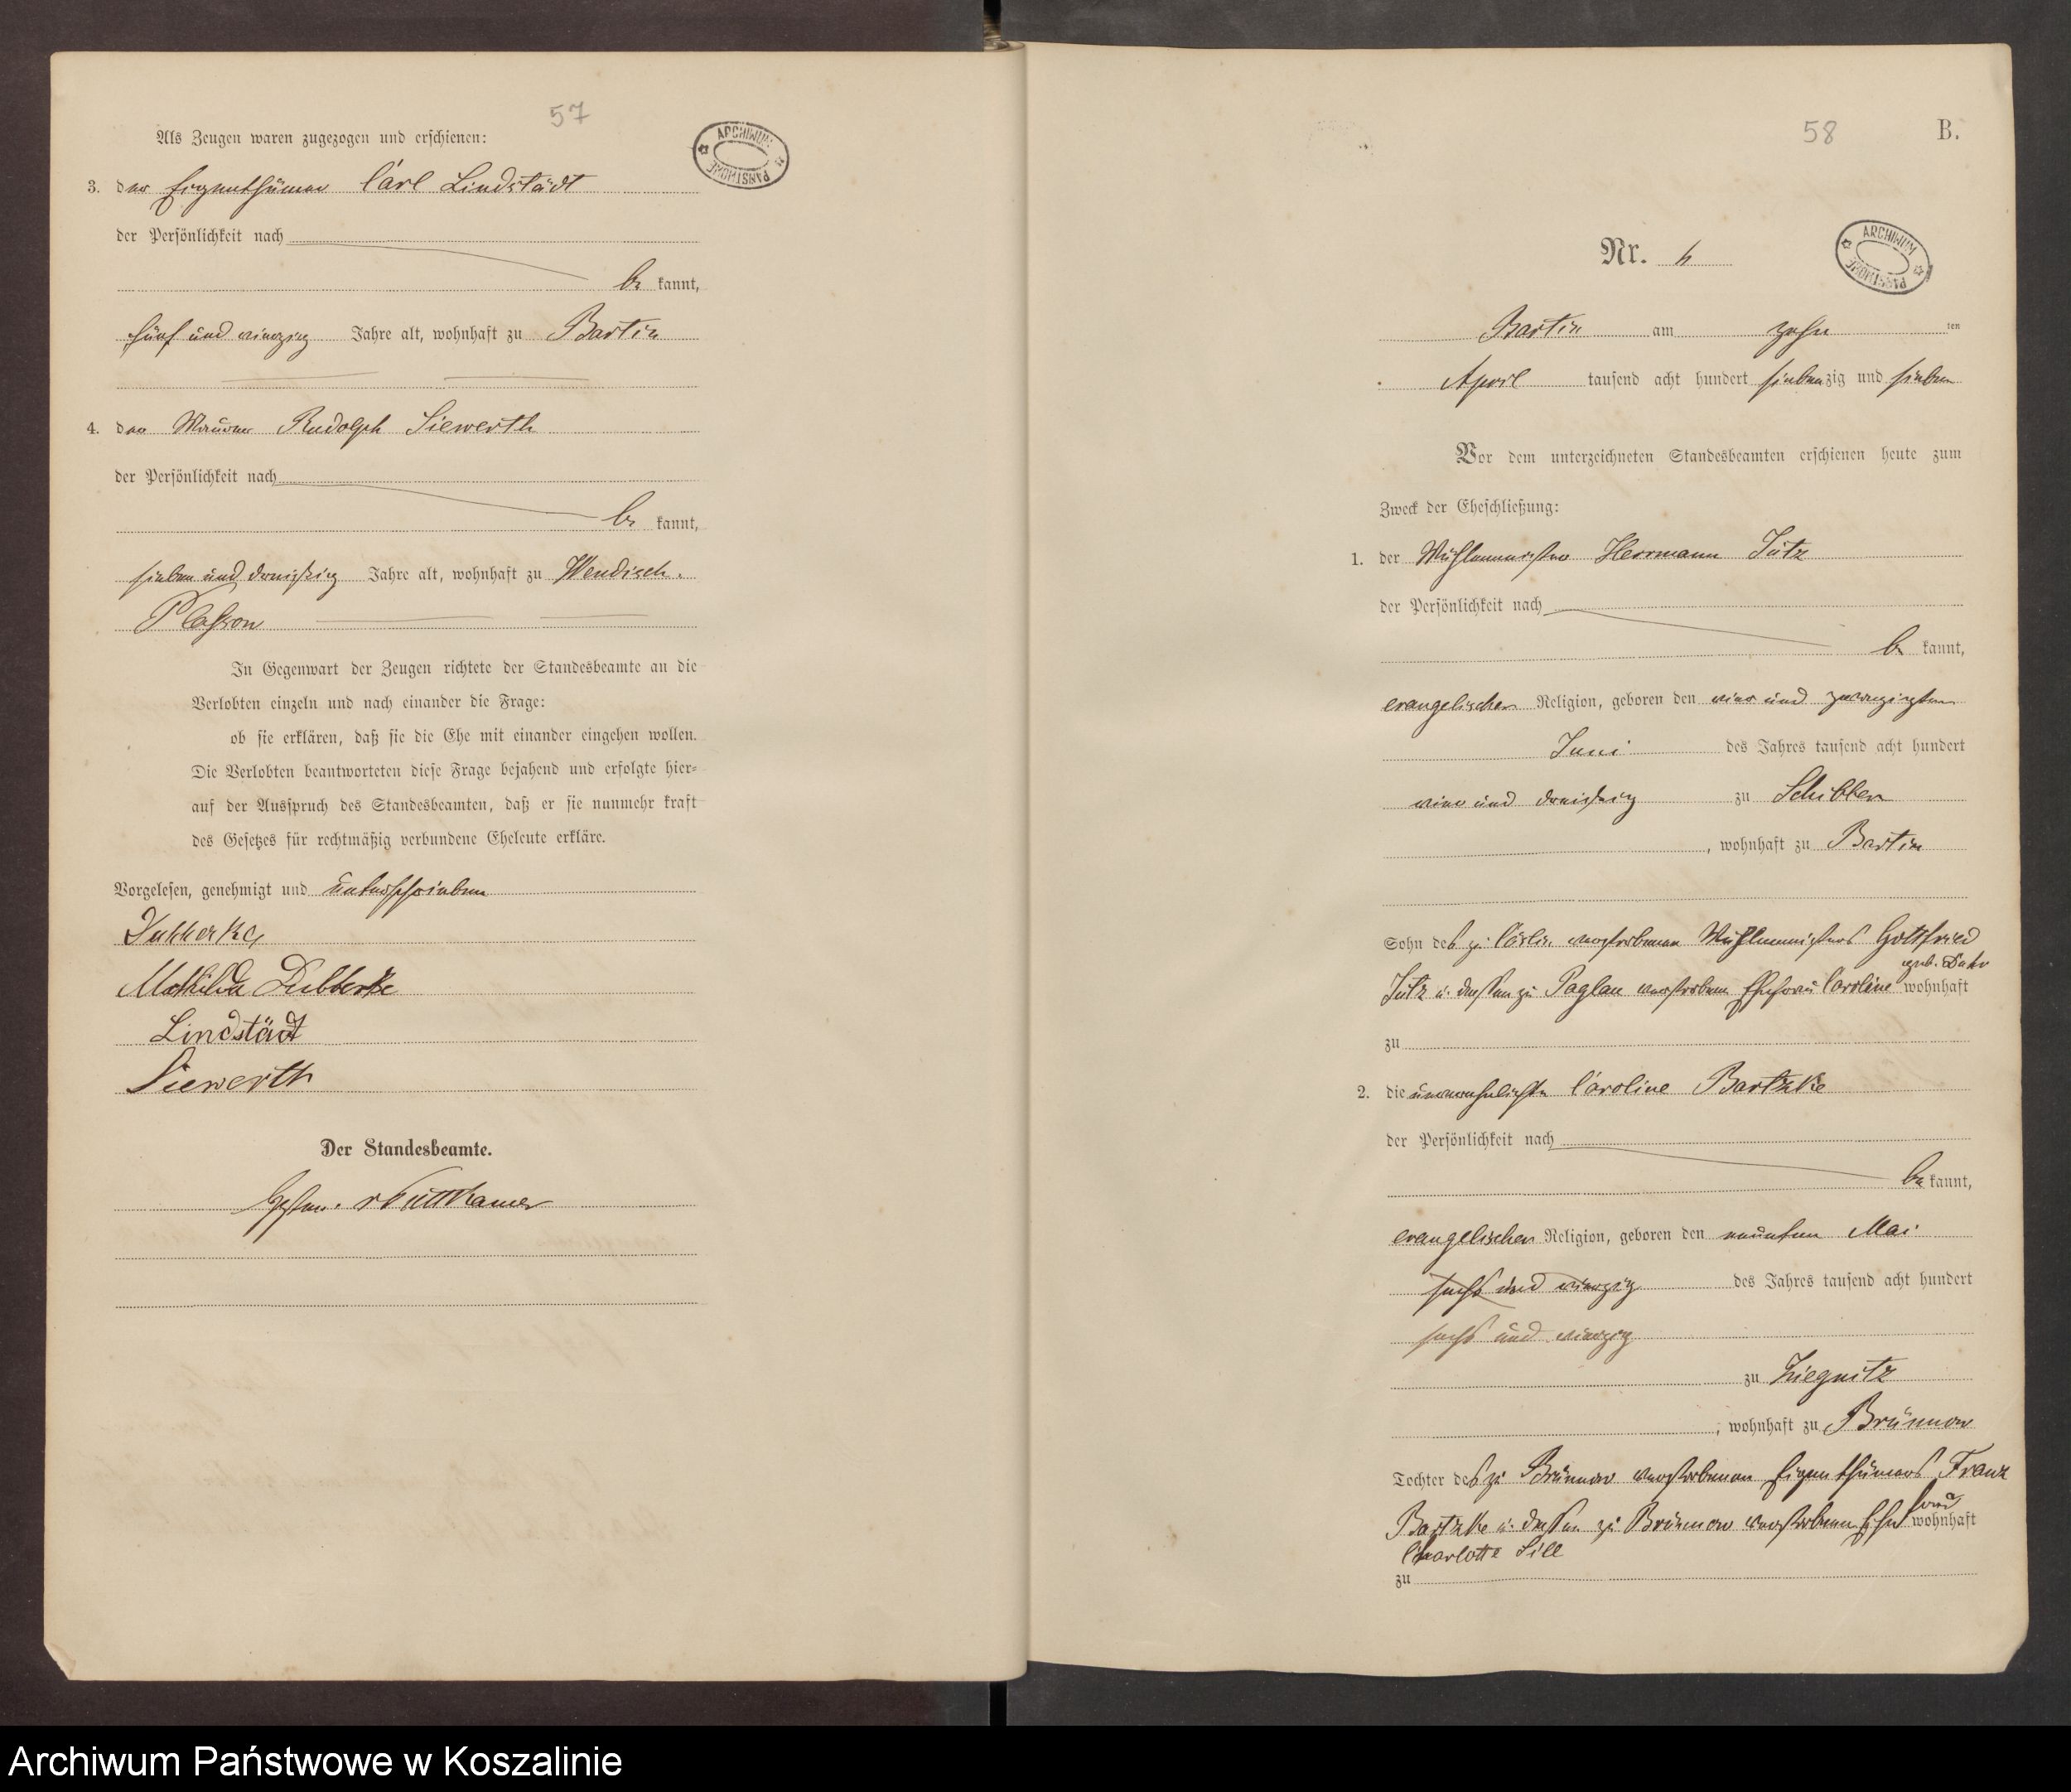 57
Als Zeugen waren zugezogen und erschienen:
3. der Eigenthümer Carl Lindstädt
der Persönlichkeit nach
be kannt,
fünf und vierzig Jahre alt, wohnhaft zu Bartin
4. der Maurer Rudolph Siewerth
der Persönlichkeit nach
be kannt,
sieben und dreißig Jahre alt, wohnhaft zu Wendisch.
Plassow
In Gegenwart der Zeugen richtete der Standesbeamte an die
Verlobten einzeln und nach einander die Frage:
ob sie erklären, daß sie die Ehe mit einander eingehen wollen.
Die Verlobten beantworteten diese Frage bejahend und erfolgte hier-
auf der Ausspruch des Standesbeamten, daß er sie nunmehr kraft
des Gesetzes für rechtmäßig verbundene Eheleute erkläre.
Vorgelesen, genehmigt und unterschrieben
Mathilda Dubberke
Lindstädt
Siewerth
Der Standesbeamte.
v Puttkamer
ARCHIWUM PAŃSTWOWE
58
B.
ARCHIWUM PAŃSTWOWE
Nr.
Bartin am zehn ten
April tausend acht hundert siebenzig und sieben
Vor dem unterzeichneten Standesbeamten erschienen heute zum
Zweck der Eheschließung:
1. der Mühlenmeister Herrmann Jütz
der Persönlichkeit nach
be kannt,
evangelischer Religion, geboren den vier und zwanzigsten
Juni des Jahres tausend acht hundert
vier und dreißig zu Schibben
, wohnhaft zu Bartin
Sohn des zu Cörlin verstorbenen Mühlenmeisters Gottfried
Jütz u. dessen zu Paglau verstorbenen Ehefrau Caroline geb. wohnhaft
zu
2. die unverehelichte Caroline Bartzke
der Persönlichkeit nach
be kannt,
evangelischer Religion, geboren den neunten Mai
sechs und vierzig des Jahres tausend acht hundert
sechs und vierzig
zu Ziegnitz
, wohnhaft zu Brünnow
Tochter des zu Brünnow verstorbenen Eigenthümers Franz
Bartzke u. dessen zu Brünnow verstorbenen Ehefrau wohnhaft
Charlotte Sill
zu
Archiwum Państwowe w Koszalinie